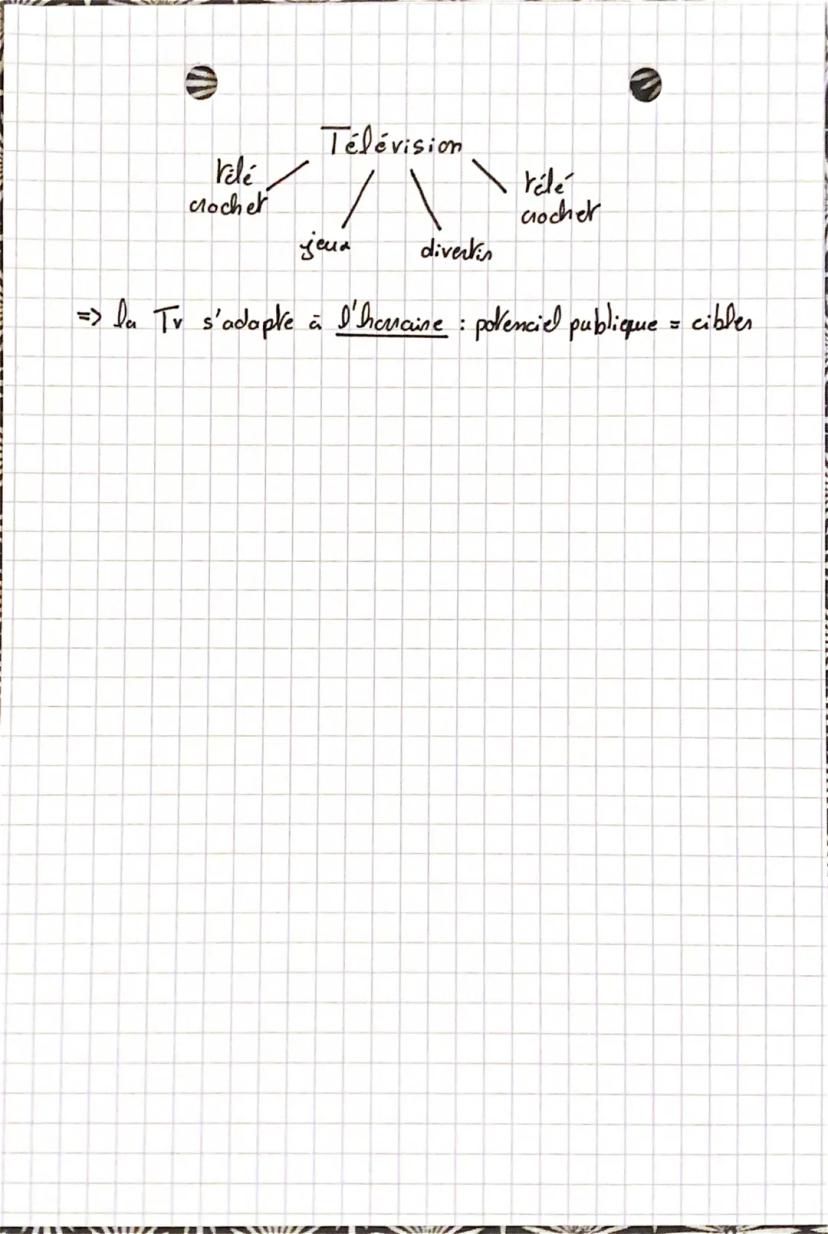 Télévision
télé
crochet
jeux
divertis
télé
crochet
=> la Tv s'adapte à l'horraire : potenciel publique = cibles